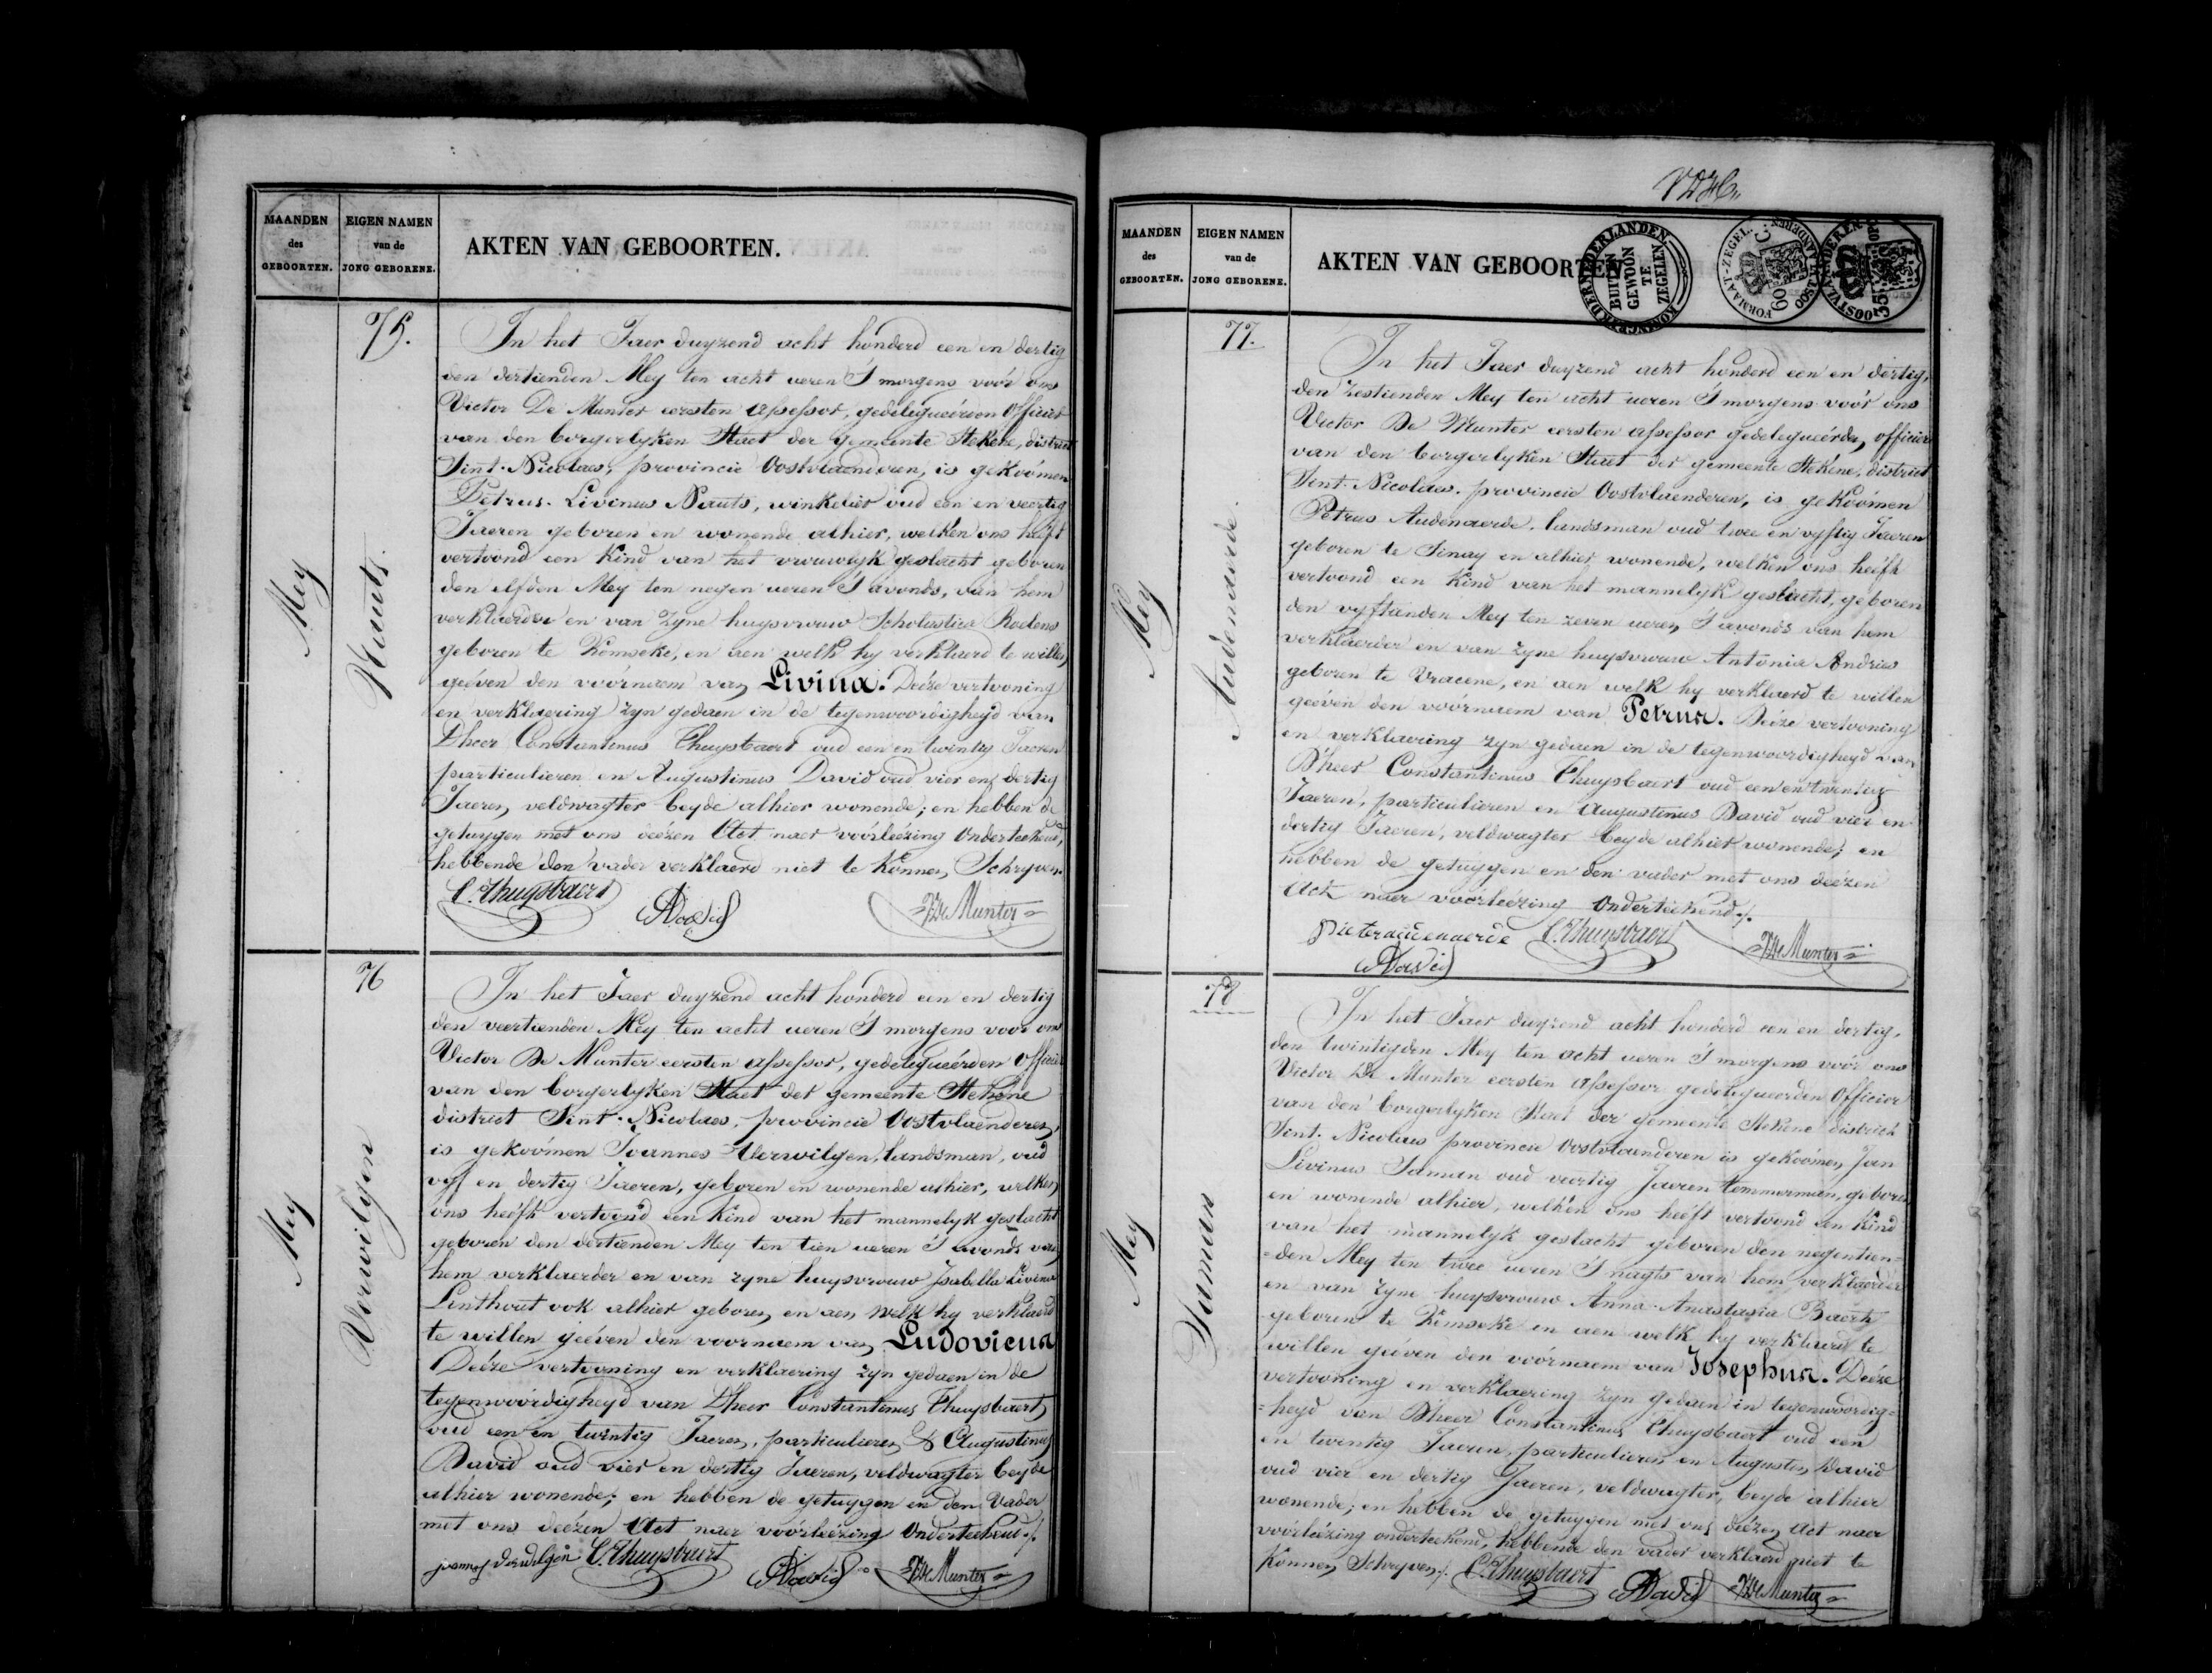 MAANDEN
des
GEBOORTEN.
EIGEN NAMEN
van de
JONG GEBORENE.
AKTEN VAN GEBOORTEN.
75.
Mey
Nauts.
In het Jaer duyzend acht honderd een en dertig
den dertienden Mey ten acht ueren S'morgens voór ons
Victor De Munter eersten assessor, gedelegueérden Officier
van den borgerlyken Staet der gemeente Stekene, district
Sint-Nicolaes, provincie Oostvlaenderen, is gekoómen
Petrus Livinus Nauts, winkelier oud een en veertig
Jaeren geboren en wonende alhier, welken ons heéft
vertoond een Kind van het vrouwlyk geslacht geboren
den elfden Mey ten negen ueren S'avonds, van hem
verklaerder en van zyne huysvrouw Scholastica Roelens
geboren te Kemseke, en aen welk hy verklaerd te willen
geéven den voórnaem van Livina. Deéze vertooning
en verklaering zyn gedaen in de tegenwoordigheyd van
D'heer Constantinus Thuysbaert oud een en twintig Jaeren
particulieren en Augustinus David oud vier en dertig
Jaeren, veldwagter beyde alhier wonende; en hebben de
getuygen met ons deézen Act naer voórleézing Onderteekend,
hebbende den vader verklaerd niet te Konnen Schryven.
C. Thuysbaert
A David
V De Munter
76
Mey
Verwilgen
In het Jaer duyzend acht honderd een en dertig
den veertienden Mey ten acht ueren S'morgens voor ons
Victor De Munter eersten assessor, gedelegueérden Officier
van den borgerlyken Staet der gemeente Stekene
district Sint-Nicolaes, provincie Oostvlaenderen,
is gekoómen Joannes Verwilgen, landsman, oud
vyf en dertig Jaeren, geboren en wonende alhier, welken
ons heéft vertoond een Kind van het mannelyk geslacht
geboren den dertienden Mey ten tien ueren S'avonds van
hem verklaerder en van zyne huysvrouw Isabella Livina
Linthout ook alhier geboren, en aen welk hy verklaerd
te willen geéven den voornaem van Ludovicus
Deéze vertooning en verklaering zyn gedaen in de
tegenwoórdigheyd van D'heer Constantinus Thuysbaert,
oud een en twintig Jaeren, particulieren & Augustinus
David oud vier en dertig Jaeren, veldwagter beyde
alhier wonende; en hebben de getuygen en den Vader
met ons deézen Act naer voórleézing Onderteekend./.
joannes Verwilgen C. Thuysbaert
A David
V De Munter
MAANDEN
des
GEBOORTEN.
EIGEN NAMEN
van de
JONG GEBORENE.
AKTEN VAN GEBOORTEN.
KONINGRYK DER NEDERLANDEN
BUITEN
GEWOON
TE
ZEGELEN
FORMAAT-ZEGEL.
60 C
OOSTVLAANDEREN
77.
Mey
Audenaerde.
In het Jaer duyzend acht honderd een en dertig,
den zestienden Mey ten acht ueren S'morgens voór ons
Victor De Munter eersten assessor gedelegueérden officier
van den borgerlyken Staet der gemeente Stekene, district
Sint-Nicolaes, provincie Oostvlaenderen, is gekoómen
Petrus Audenaerde, landsman oud twee en vyftig Jaeren
geboren te Sinay en alhier wonende, welken ons heéft
vertoond een Kind van het mannelyk geslacht, geboren
den vyftienden Mey ten zeven ueren S'avonds van hem
verklaerder en van zyne huysvrouw Antonia Andries
geboren te Vracene, en aen welk hy verklaerd te willen
geéven den voórnaem van Petrus. Deéze vertooning
en verklaering zyn gedaen in de tegenwoordigheyd van
D'heer Constantinus Thuysbaert oud een en twintig
Jaeren, particulieren en Augustinus David oud vier en
dertig Jaeren, veldwagter beyde alhier wonende; en
hebben de getuygen en den vader met ons deézen
Act naer voórleézing Onderteekend./.
Pieter audenaerde C. Thuysbaert
V De Munter
A David
78
Mey
Saman
In het Jaer duyzend acht honderd een en dertig,
den twintigden Mey ten acht ueren S'morgens voór ons
Victor De Munter eersten assessor gedelegueerden Officier
van den borgerlyken Staet der gemeente Stekene district
Sint-Nicolaes provincie Oostvlaenderen is gekoómen Jan
Livinus Saman oud veertig Jaeren temmerman, geboren
en wonende alhier, welken ons heéft vertoond een Kind
van het mannelyk geslacht geboren den negentien=
=den Mey ten twee ueren S'nagts van hem verklaerder
en van zyne huysvrouw Anna Anastasia Baert
geboren te Kemseke en aen welk hy verklaerd te
willen geéven den voórnaem van Josephus. Deéze
vertooning en verklaering zyn gedaen in tegenwoordig=
=heyd van D'heer Constantinus Thuysbaert oud een
en twintig Jaeren, particulieren en Augustin David
oud vier en dertig Jaeren, veldwagter, beyde alhier
wonende; en hebben de getuygen met ons deézen Act naer
voórleézing onderteekend, hebbende den vader verklaerd niet te
Konnen Schryven./. C. Thuysbaert
A David
V De Munter